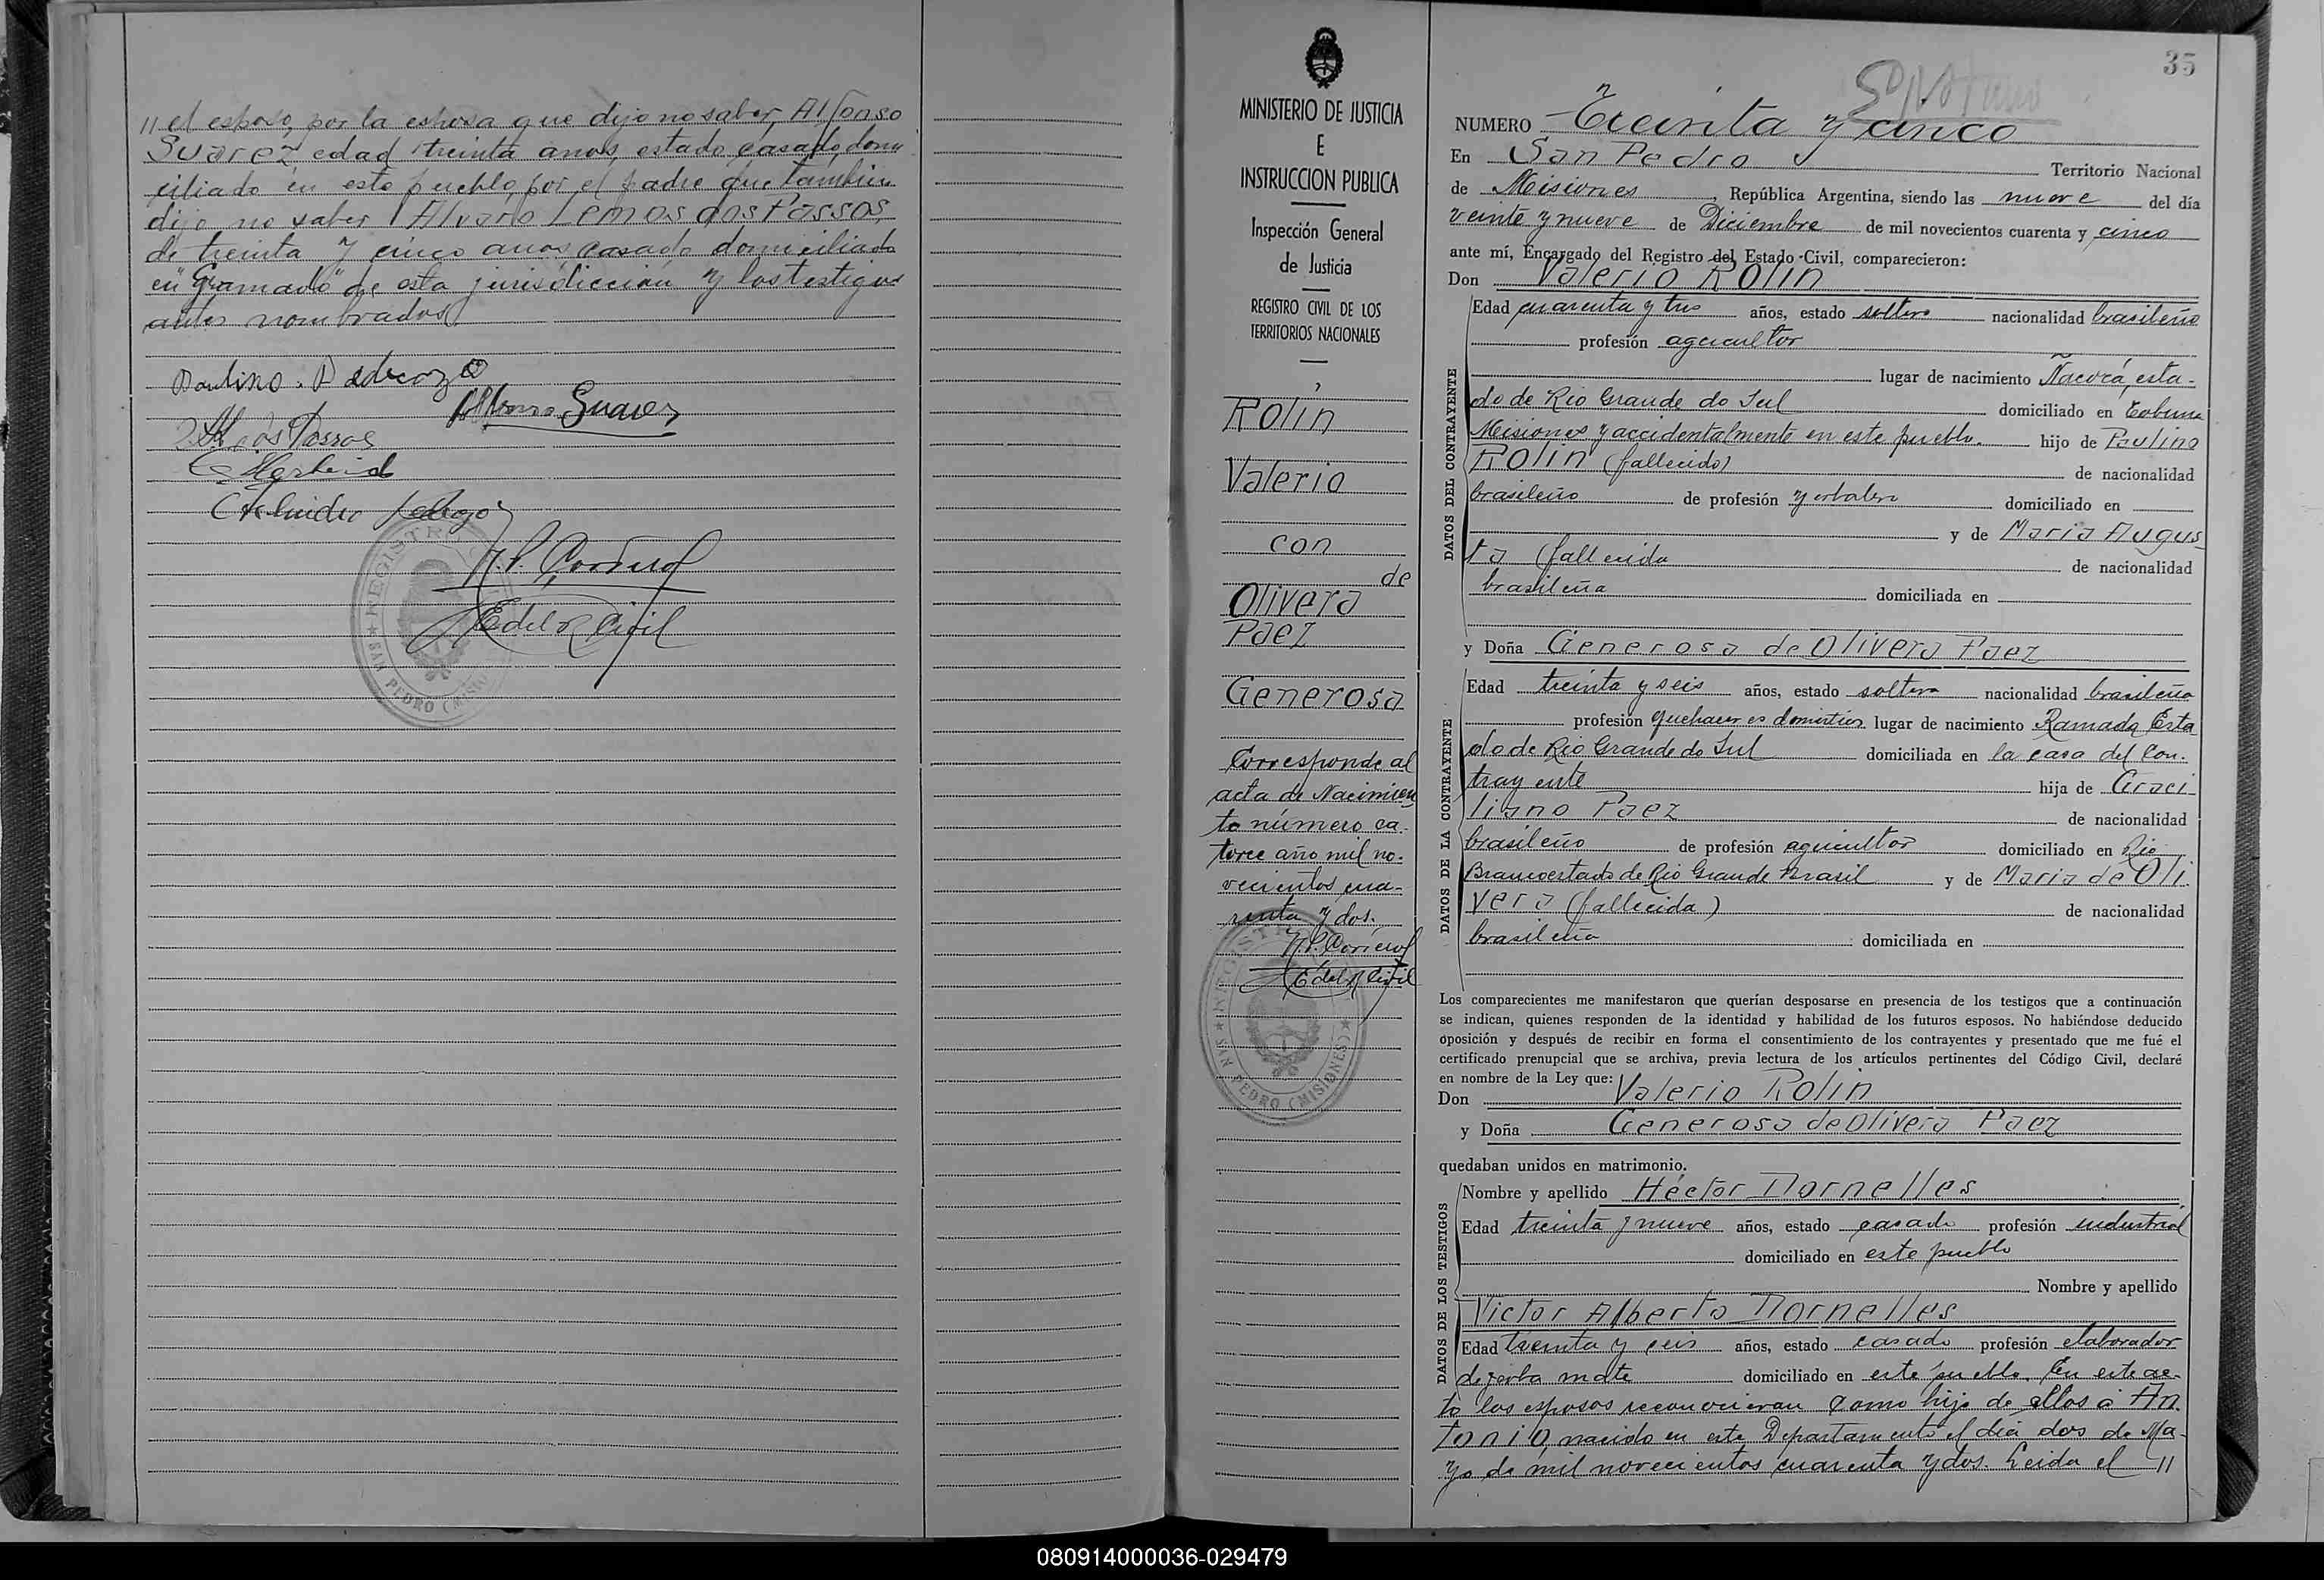 // el esposo, por la esposa que dijo no saber, Alfonso
Suarez edad treinta anos, estado casado domi
ciliado en este pueblo, por el padre que tambien
dijo no saber Alvaro Lemos dos Passos,
de treinta y cinco anos casado domiciliado
en "Gramado" de esta jurisdiccion y los testigos
antes nombrados
Alfonso Suarez
dos Passos
E. del R. Civil
REGISTRO CIVIL
SAN PEDRO (MISIONES)
MINISTERIO DE JUSTICIA
E
INSTRUCCION PUBLICA
Inspección General
de Justicia
REGISTRO CIVIL DE LOS
TERRITORIOS NACIONALES
Rolin
Valerio
con
de
Olivera
Paez
Generosa
Corresponde al
acta de Nacimien
to número ca-
torce año mil no-
vecientos cua-
renta y dos.
E. del R. Civil
SAN PEDRO (MISIONES)
35
NUMERO Treinta y cinco
En San Pedro Territorio Nacional
de Misiones, República Argentina, siendo las nueve del día
veinte y nueve de Diciembre de mil novecientos cuarenta y cinco
ante mí, Encargado del Registro del Estado Civil, comparecieron:
Don Valerio Rolin
DATOS DEL CONTRAYENTE
Edad cuarenta y tres años, estado soltero nacionalidad brasileño
profesión agricultor
lugar de nacimiento Ñacorá, esta-
do de Rio Grande do Sul domiciliado en Tobuna
Misiones y accidentalmente en este pueblo. hijo de Paulino
Rolin (fallecido) de nacionalidad
brasileño de profesión yerbatero domiciliado en
y de Maria Augus
ta (fallecida de nacionalidad
brasileña domiciliada en
y Doña Generosa de Olivera Paez
DATOS DE LA CONTRAYENTE
Edad treinta y seis años, estado soltera nacionalidad brasileña
profesión quehaceres domésticos lugar de nacimiento Ramada Esta
do de Rio Grande do Sul domiciliada en la casa del con-
trayente hija de Graci
liano Paez de nacionalidad
brasileño de profesión agricultor domiciliado en Rio
Branco estado de Rio Grande Brasil y de Maria de Oli
vera (fallecida) de nacionalidad
brasileña domiciliada en
Los comparecientes me manifestaron que querían desposarse en presencia de los testigos que a continuación
se indican, quienes responden de la identidad y habilidad de los futuros esposos. No habiéndose deducido
oposición y después de recibir en forma el consentimiento de los contrayentes y presentado que me fué el
certificado prenupcial que se archiva, previa lectura de los artículos pertinentes del Código Civil, declaré
en nombre de la Ley que:
Don Valerio Rolin
y Doña Generosa de Olivera Paez
quedaban unidos en matrimonio.
DATOS DE LOS TESTIGOS
Nombre y apellido Héctor Dornelles
Edad treinta y nueve años, estado casado profesión industrial
domiciliado en este pueblo
Nombre y apellido
Victor Alberto Dornelles
Edad treinta y seis años, estado casado profesión elaborador
de yerba mate domiciliado en este pueblo. En este ac-
to los esposos reconocieron como hijo de ellos a An
tonio, nacido en este Departamento el día dos de Ma-
yo de mil novecientos cuarenta y dos. Leida el //
080914000036-029479